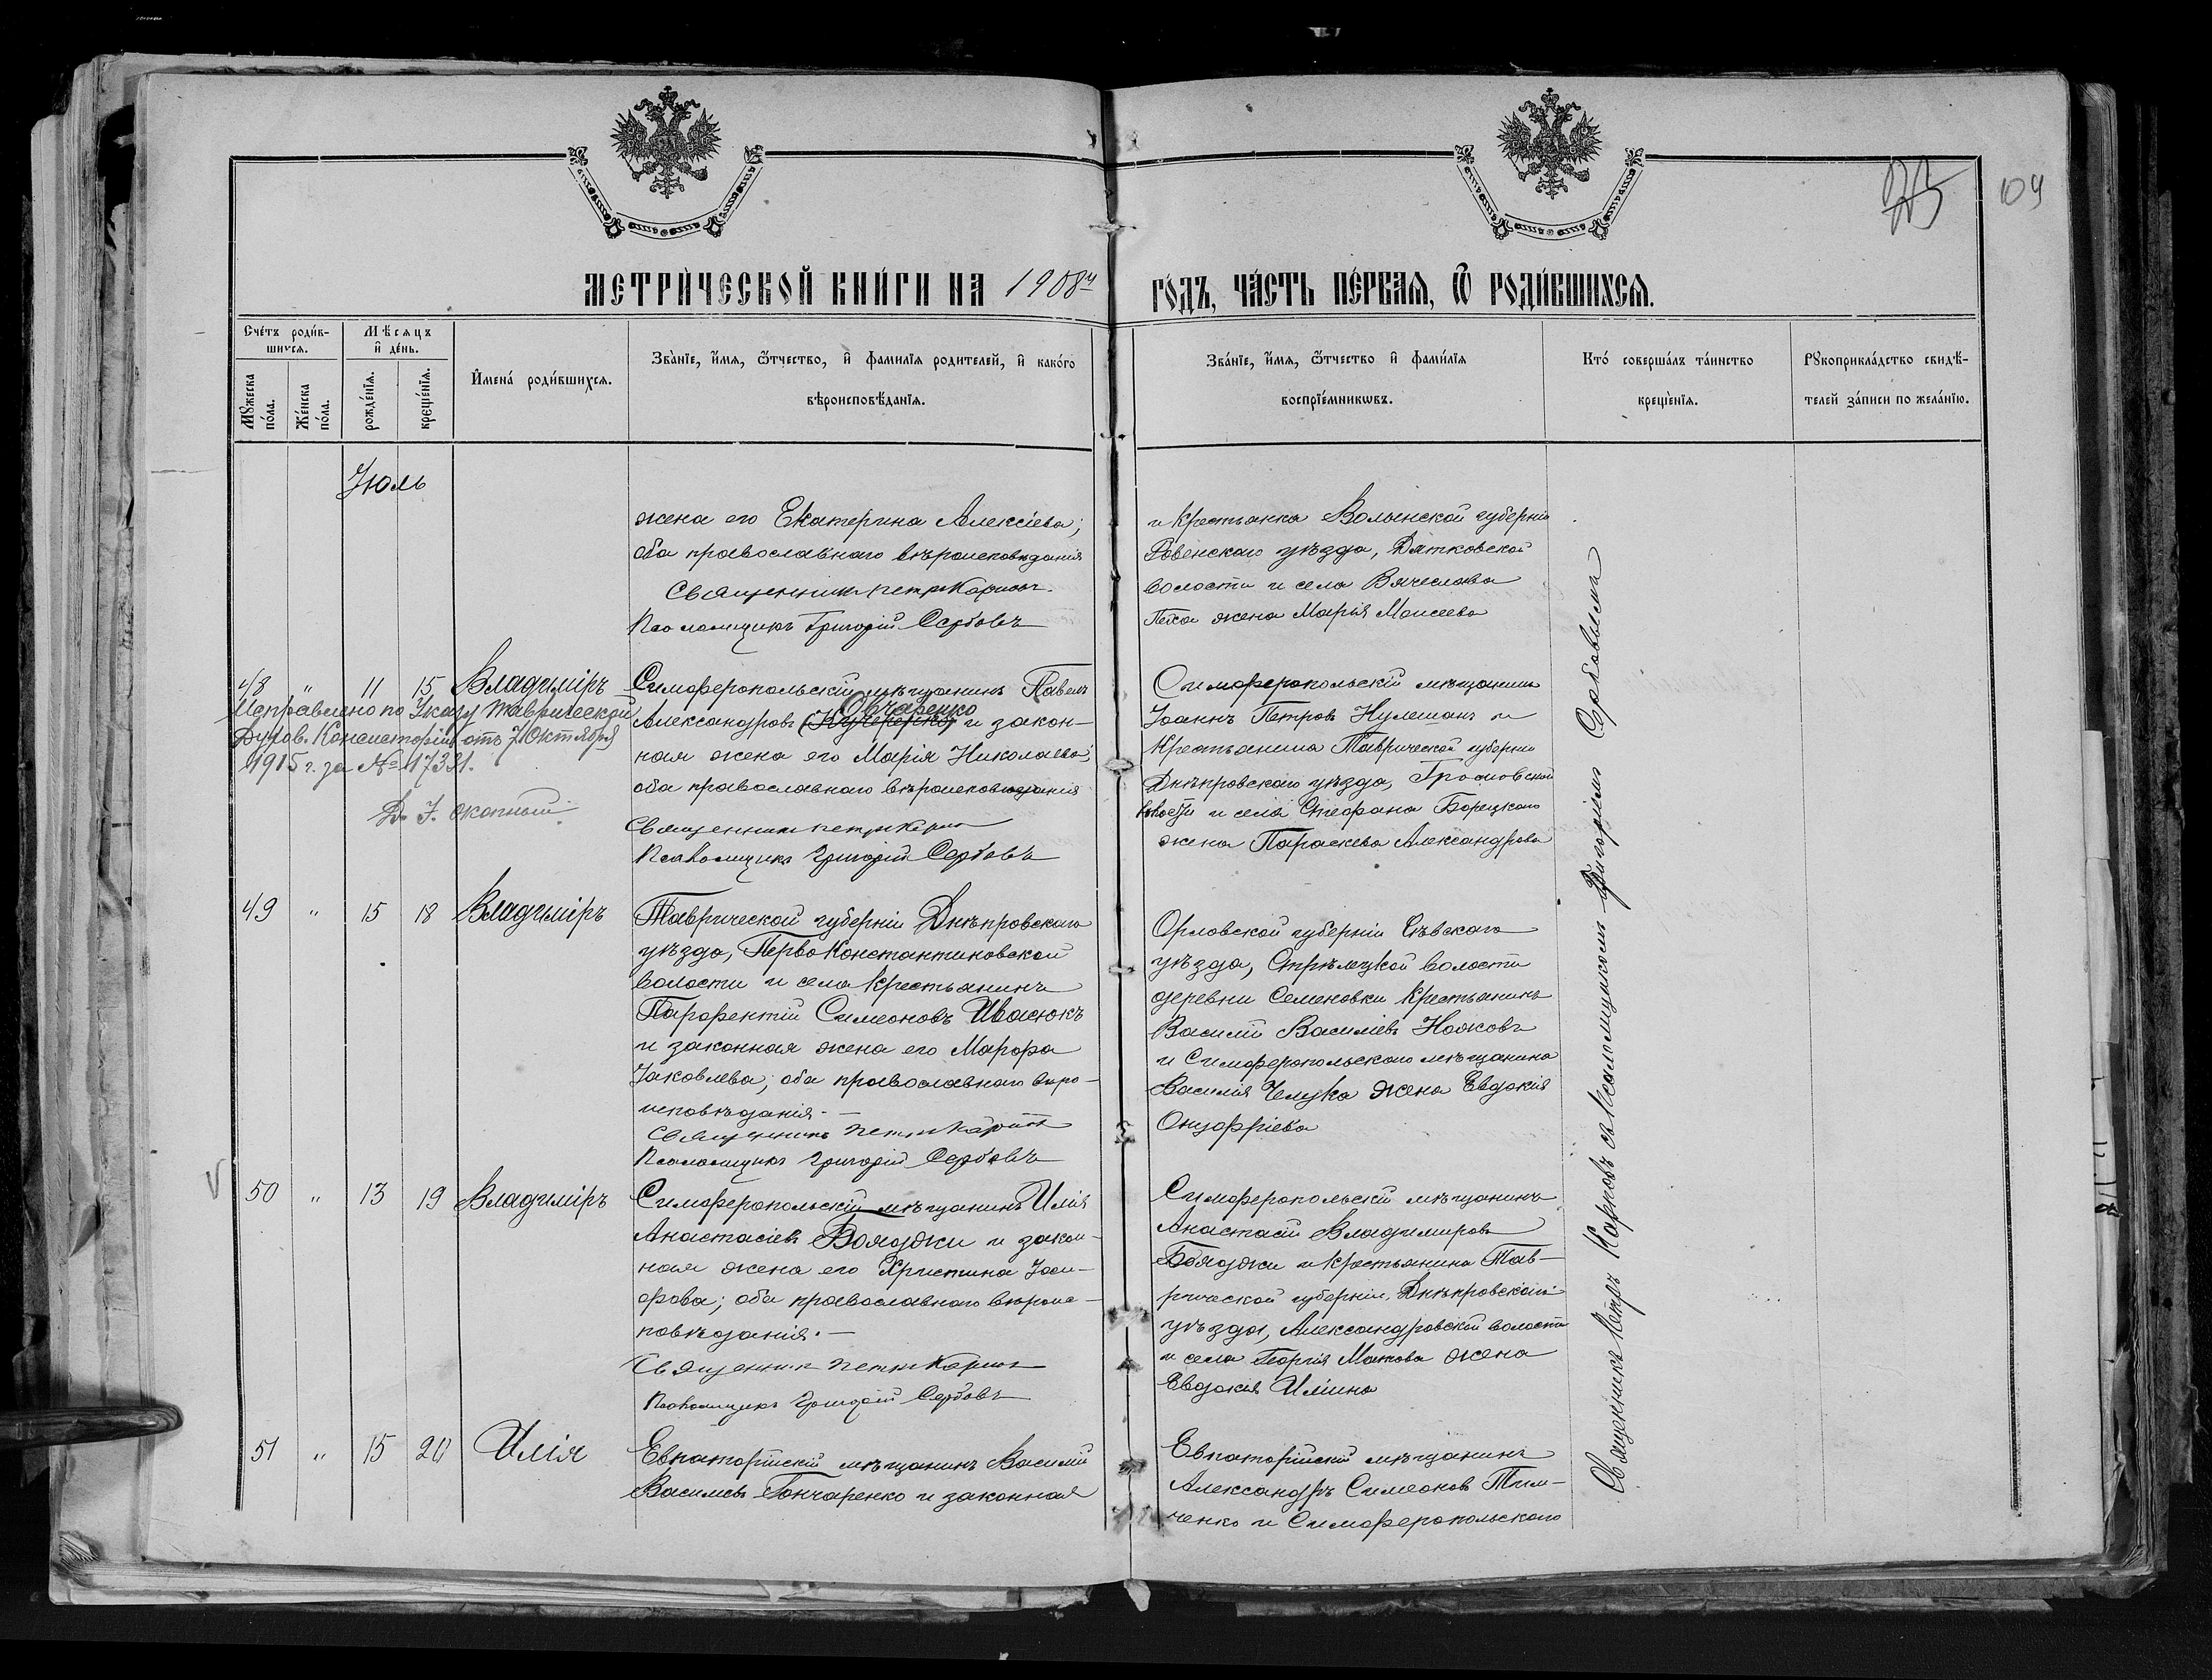 104
МЕТРИ́ЧЕСКОЙ КНИ́ГИ НА 1908й ГО́ДЪ, ЧА́СТЬ ПЕ́РВАѦ, Ѿ РОДИ́ВШИХСѦ.
Сче́тъ роди́в-
шихсѧ.
Мꙋжеска по́ла.
Же́нска по́ла.
Мѣсѧцъ
и҆ де́нь.
рожде́нїѧ.
креще́нїѧ.
И҆мена́ роди́вшихсѧ.
Зва́нїе, и҆́мѧ, ѻ҆́тчество, и҆ фами́лїѧ родителей, и҆ како́го
вѣроисповѣ́данїѧ.
Зва́нїе, и҆́мѧ, ѻ҆́тчество и҆ фами́лїѧ
воспрїе́мникѡвъ.
Кто́ соверша́лъ та́инство
креще́нїѧ.
Рꙋкоприкла́дство свидѣ́-
телей за́писи по жела́нїю.
Іюль
жена его Екатерина Алексіева;
оба православнаго вѣроисповѣданія
Священникъ Петръ Карповъ
Псаломщикъ Григорій Сербовъ
и крестьянка Волынской губерніи
Ровенскаго уѣзда, Дятковской
волости и села Вячеслава
жена Марія Моисеева
48 " 11 15 Владиміръ
Исправлено по Указу Таврической
Духов. Консисторіи отъ 7 Октября
1915 г. за № 17331.
Симферопольскій мѣщанинъ Павелъ
Овчаренко
Александровъ и закон-
ная жена его Марія Николаева,
оба православнаго вѣроисповѣданія
Священникъ Петръ Карповъ
Псаломщикъ Григорій Сербовъ
Симферопольскій мѣщанинъ
Іоаннъ Петровъ Кулешанъ и
крестьянина Таврической губерніи
Днѣпровскаго уѣзда, Громовской
волости и села Стефана Борецкаго
жена Параскева Александрова
49 " 15 18 Владиміръ
Таврической губерніи Днѣпровскаго
уѣзда, Перво Константиновской
волости и села крестьянинъ
Парфентій Симеоновъ Ивасюкъ
и законная жена его Марфа
Іаковлева; оба православнаго вѣро-
исповѣданія. —
Священникъ Петръ Карповъ
Псаломщикъ Григорій Сербовъ
Орловской губерніи Сѣвскаго
уѣзда, Стрѣлецкой волости
деревни Семеновки крестьянинъ
Василій Василіевъ Ножковъ
и Симферопольскаго мѣщанина
Василія жена Евдокія
Онуфріева
V 50 " 13 19 Владиміръ
Симферопольскій мѣщанинъ Илія
Анастасіевъ Бояджи и закон-
ная жена его Христина Іоси-
фова; оба православнаго вѣроис-
повѣданія. —
Священникъ Петръ Карповъ
Псаломщикъ Григорій Сербовъ
Симферопольскій мѣщанинъ
Анастасій Владимировъ
Бояджи и крестьянина Тав-
рической губерніи, Днѣпровскаго
уѣзда, Александровской волости
и села Георгія жена
Евдокія Иліина
51 " 15 20 Илія
Евпаторійскій мѣщанинъ Василій
Василіевъ Гончаренко и законная
Евпаторійскій мѣщанинъ
Александръ Симеоновъ Тим-
ченко и Симферопольскаго
Священникъ Петръ Карповъ съ псаломщикомъ Григоріемъ Сербовымъ